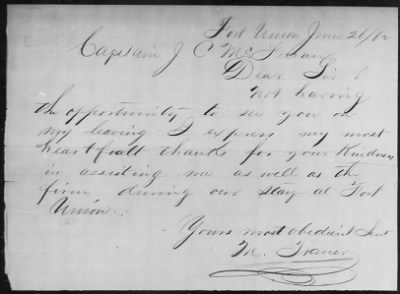 Fort Union June 26/62
Captain J C McFerran
Dear Sir
not having
the opportunity to see you on
my leaving I express my most
heartfelt thanks for your Kindness
in assisting me as well as the
firm during our stay at Fort
Union.
Yours most obedient Servt
M.